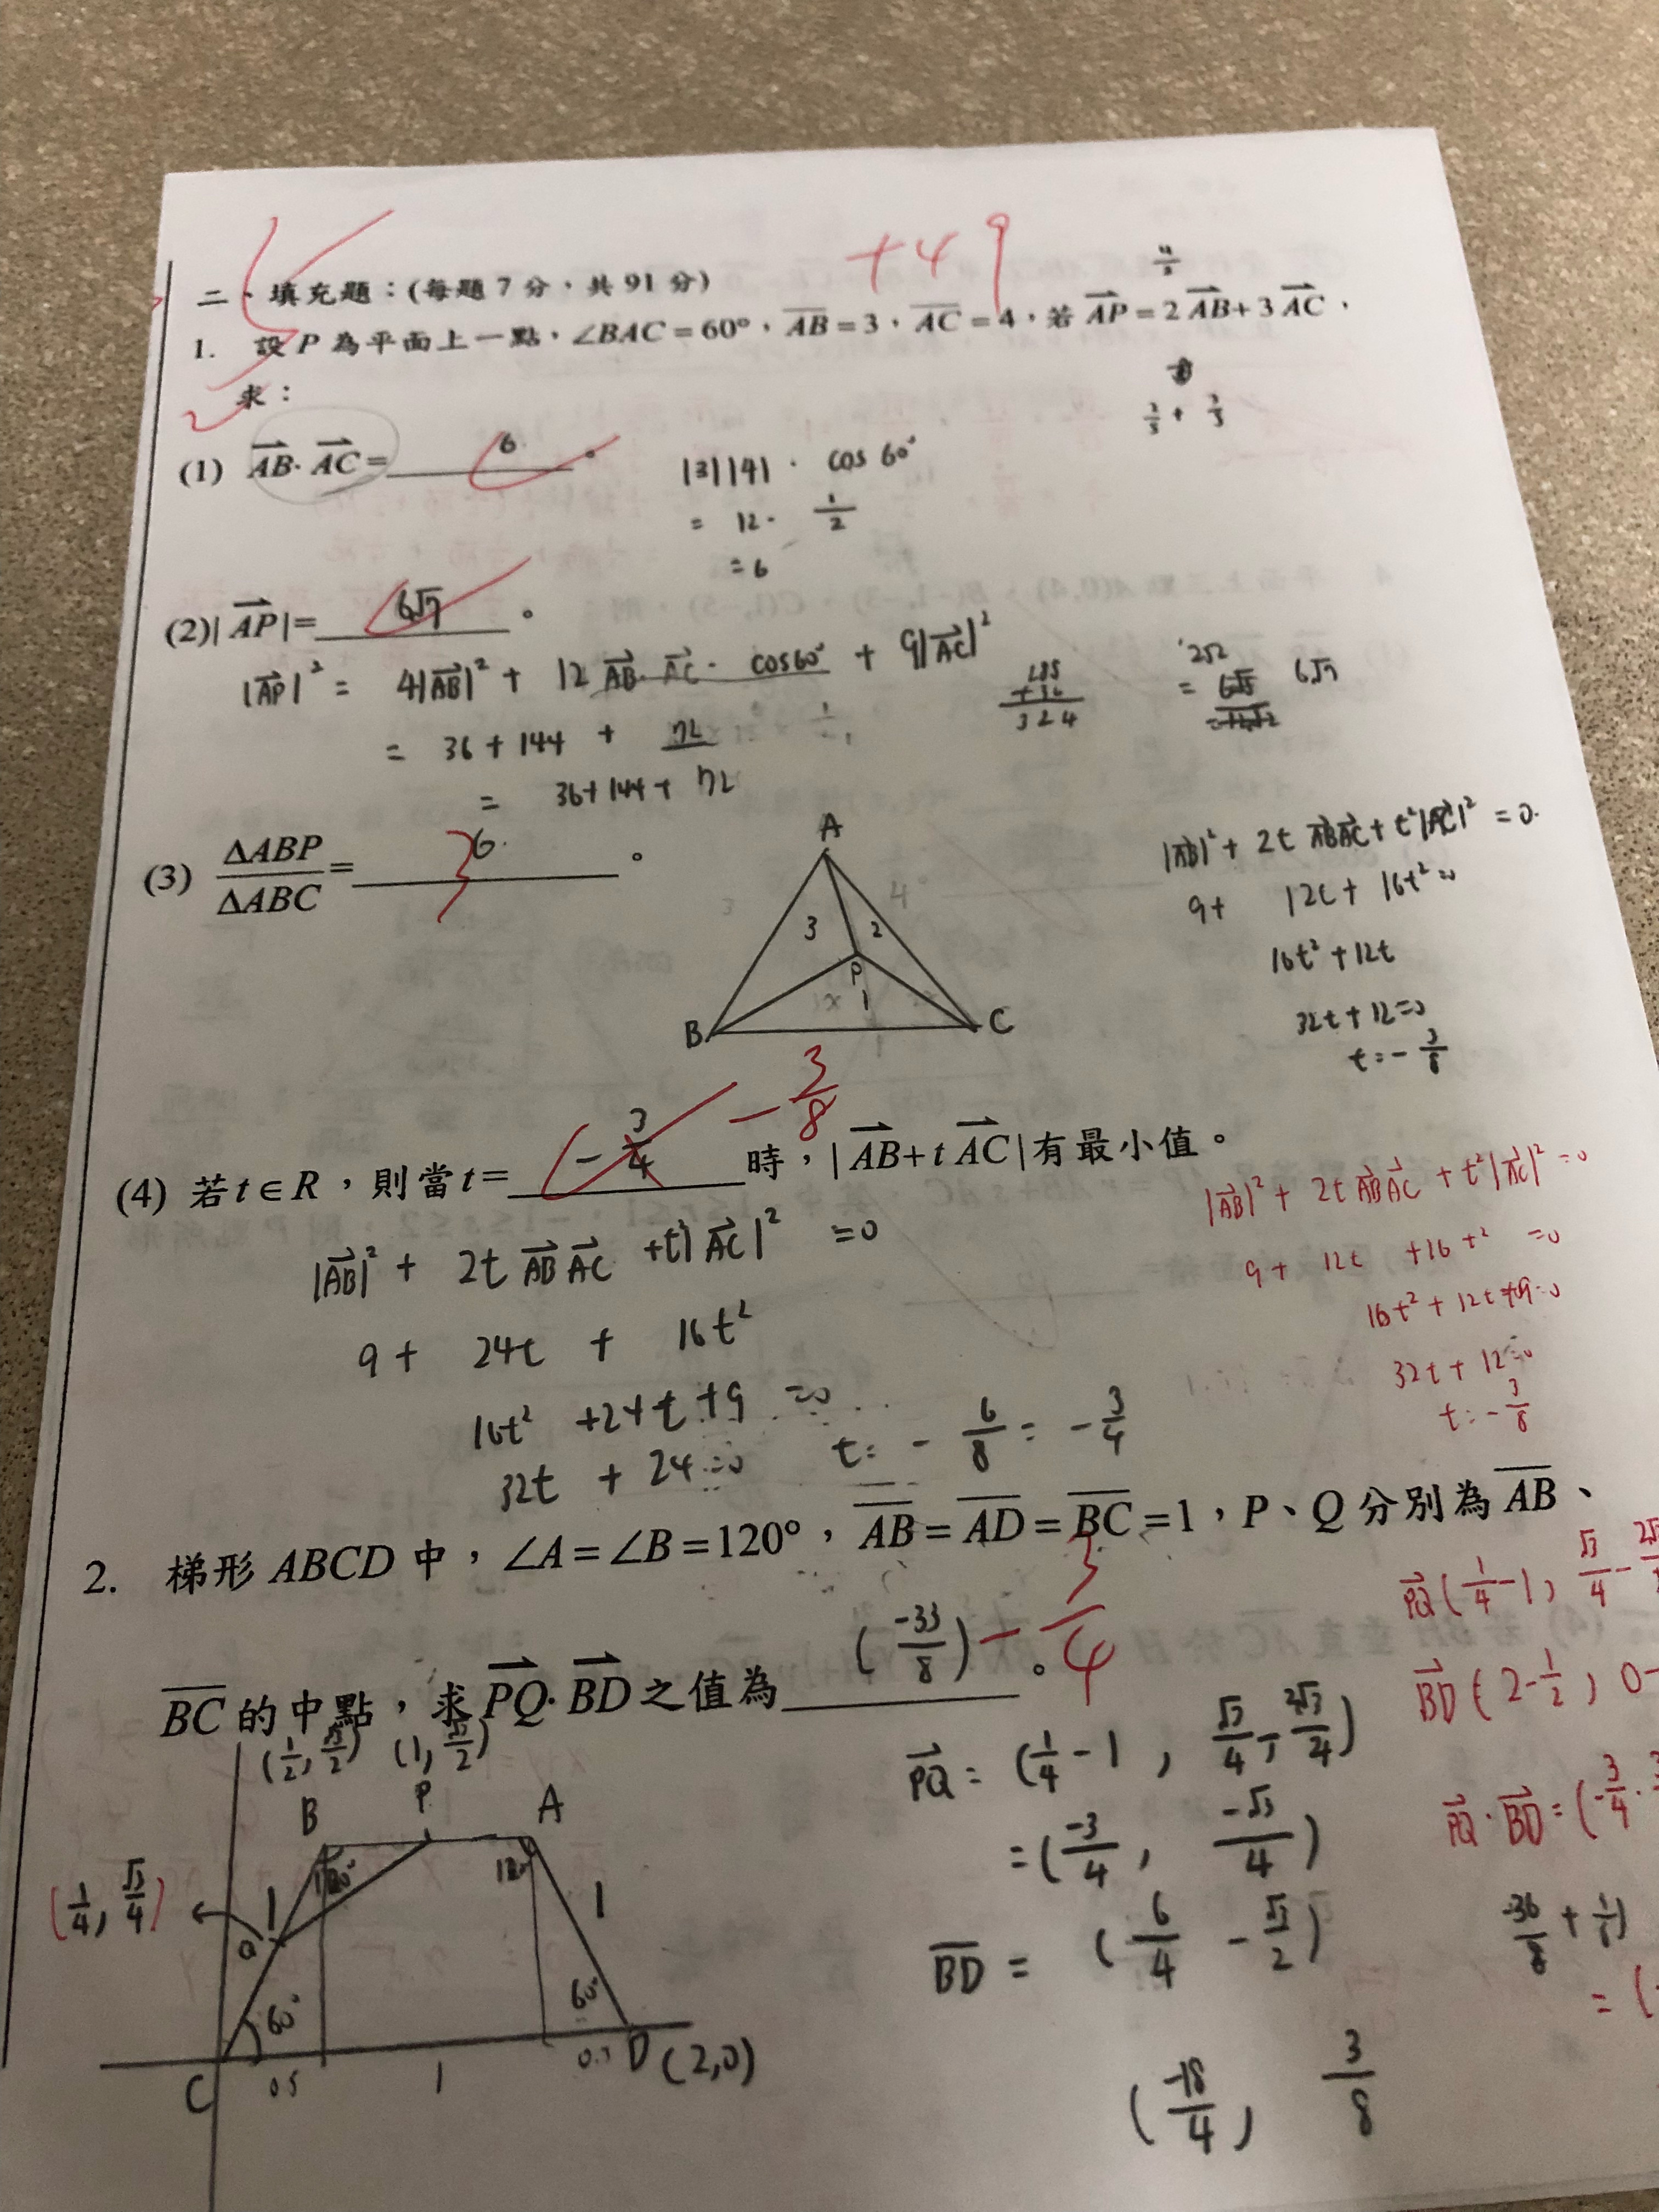 +49
二、填充題：(每題 7 分，共 91 分)
1. 設 P 為平面上一點，∠BAC = 60°，AB = 3，AC = 4，若 AP = 2 AB + 3 AC，
求：
(1) AB · AC = 6 。
|3||4| · cos 60°
= 12 · 1/2
= 6
(2) |AP| = 6√7 。
|AP|² = 4|AB|² + 12 AB · AC · cos60° + 9|AC|²
= 36 + 144 + 72
= 36 + 144 + 72
324
252
6√7
(3) ΔABP/ΔABC = 6 。
3
A
3
2
P
1
B
C
|AB|² + 2t AB AC + t²|AC|² = 0
9 + 12t + 16t² = 0
16t² + 12t
32t + 12 = 0
t = - 3/8
(4) 若 t ∈ R，則當 t = - 3/4 時，| AB + t AC | 有最小值。
- 3/8
|AB|² + 2t AB AC + t²|AC|² = 0
9 + 24t + 16t²
16t² + 24t + 9 = 0
32t + 24 = 0
t = - 6/8 = - 3/4
|AB|² + 2t AB AC + t²|AC|² = 0
9 + 12t + 16t² = 0
16t² + 12t + 9 = 0
32t + 12 = 0
t = - 3/8
2. 梯形 ABCD 中，∠A = ∠B = 120°，AB = AD = BC = 1，P、Q 分別為 AB、
BC 的中點，求 PQ · BD 之值為 (-33/8) 。
- 3/4
(1/2, √3/2) (1, √3/2)
B P A
120° 120
(1/4, √3/4)
1
1
Q
60°
60°
C 0.5 1 D (2,0)
PQ = (1/4 - 1, √3/4 - 2√3/4)
= (-3/4, -√3/4)
BD = (6/4 - √3/2)
(-18/4, 3/8)
PQ (1/4 - 1, √3/4 -
BD (2 - 1/2, 0 -
PQ · BD = (- 3/4 ·
-36/8 +
= (